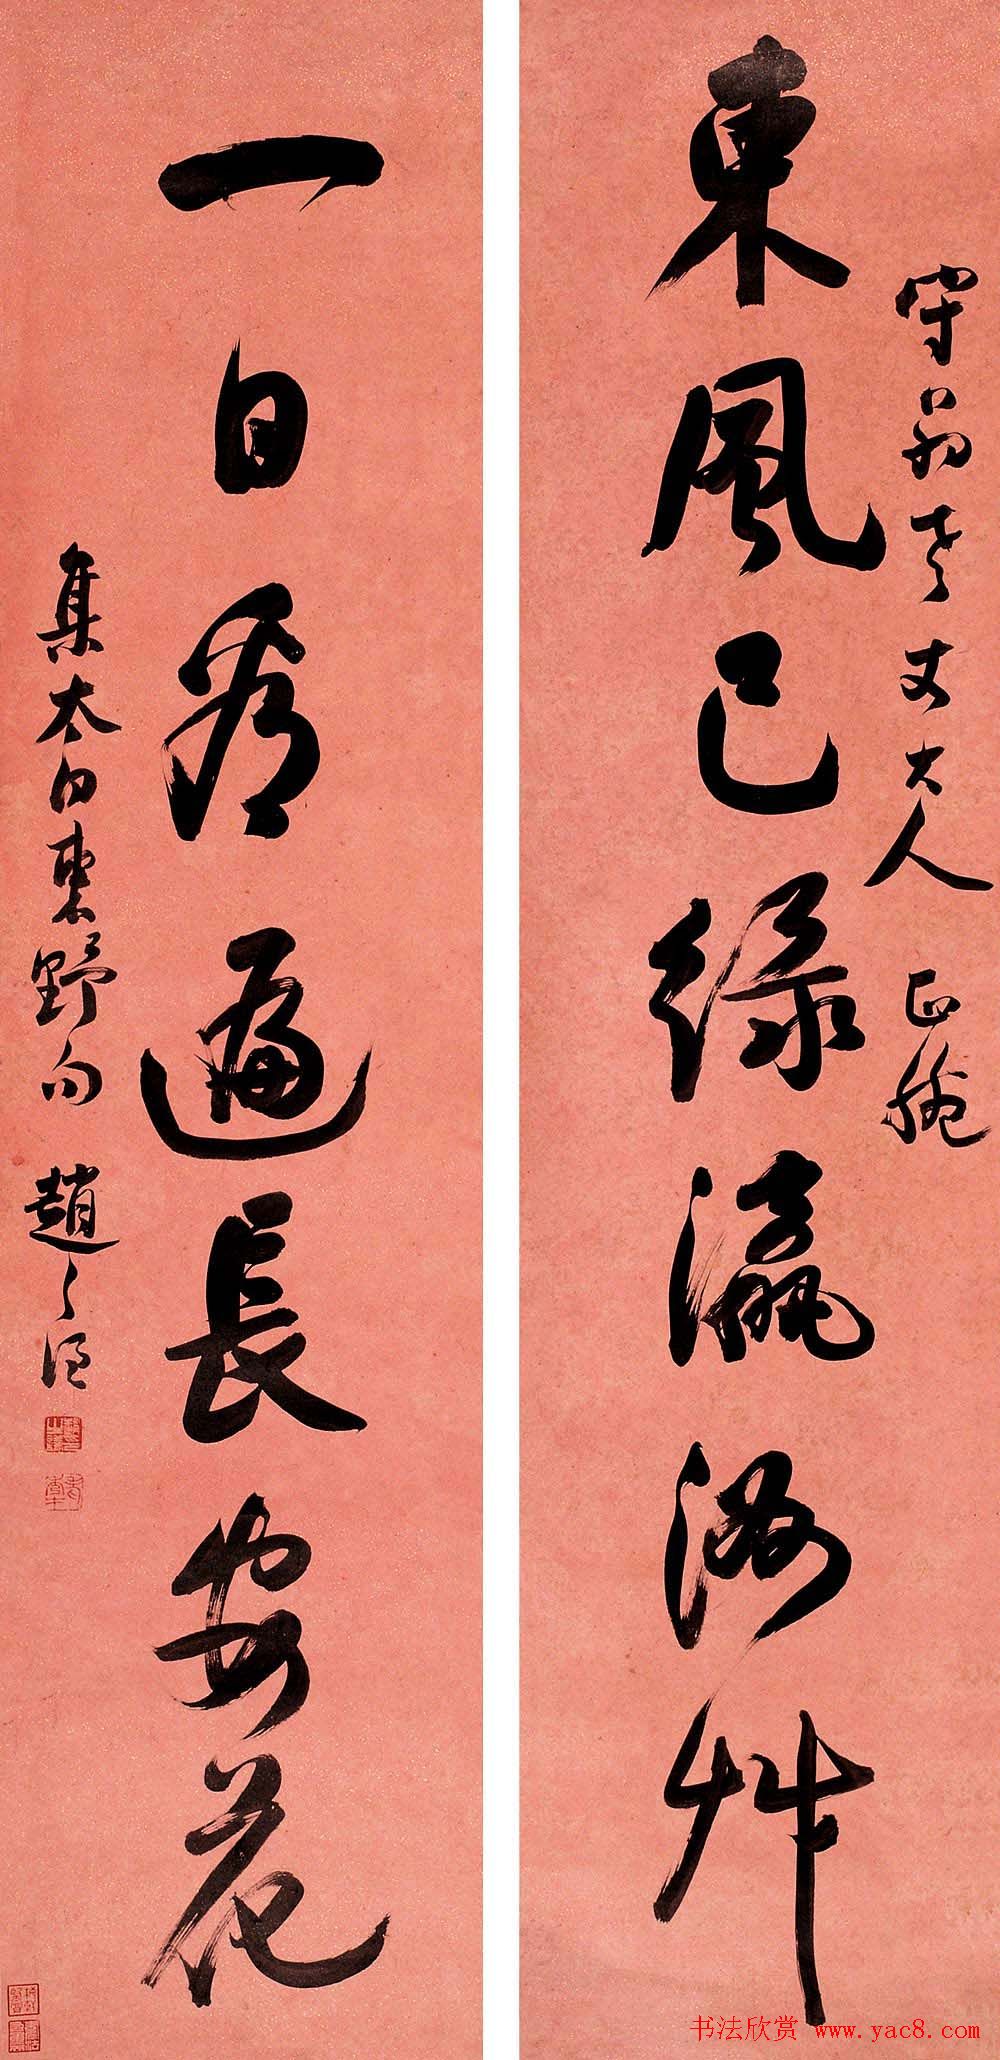 守翁老丈大人 正腕
東風已綠瀛洲艸
一日看遍長安花
集太白東野句 趙之
书法欣赏 www.yac8.com